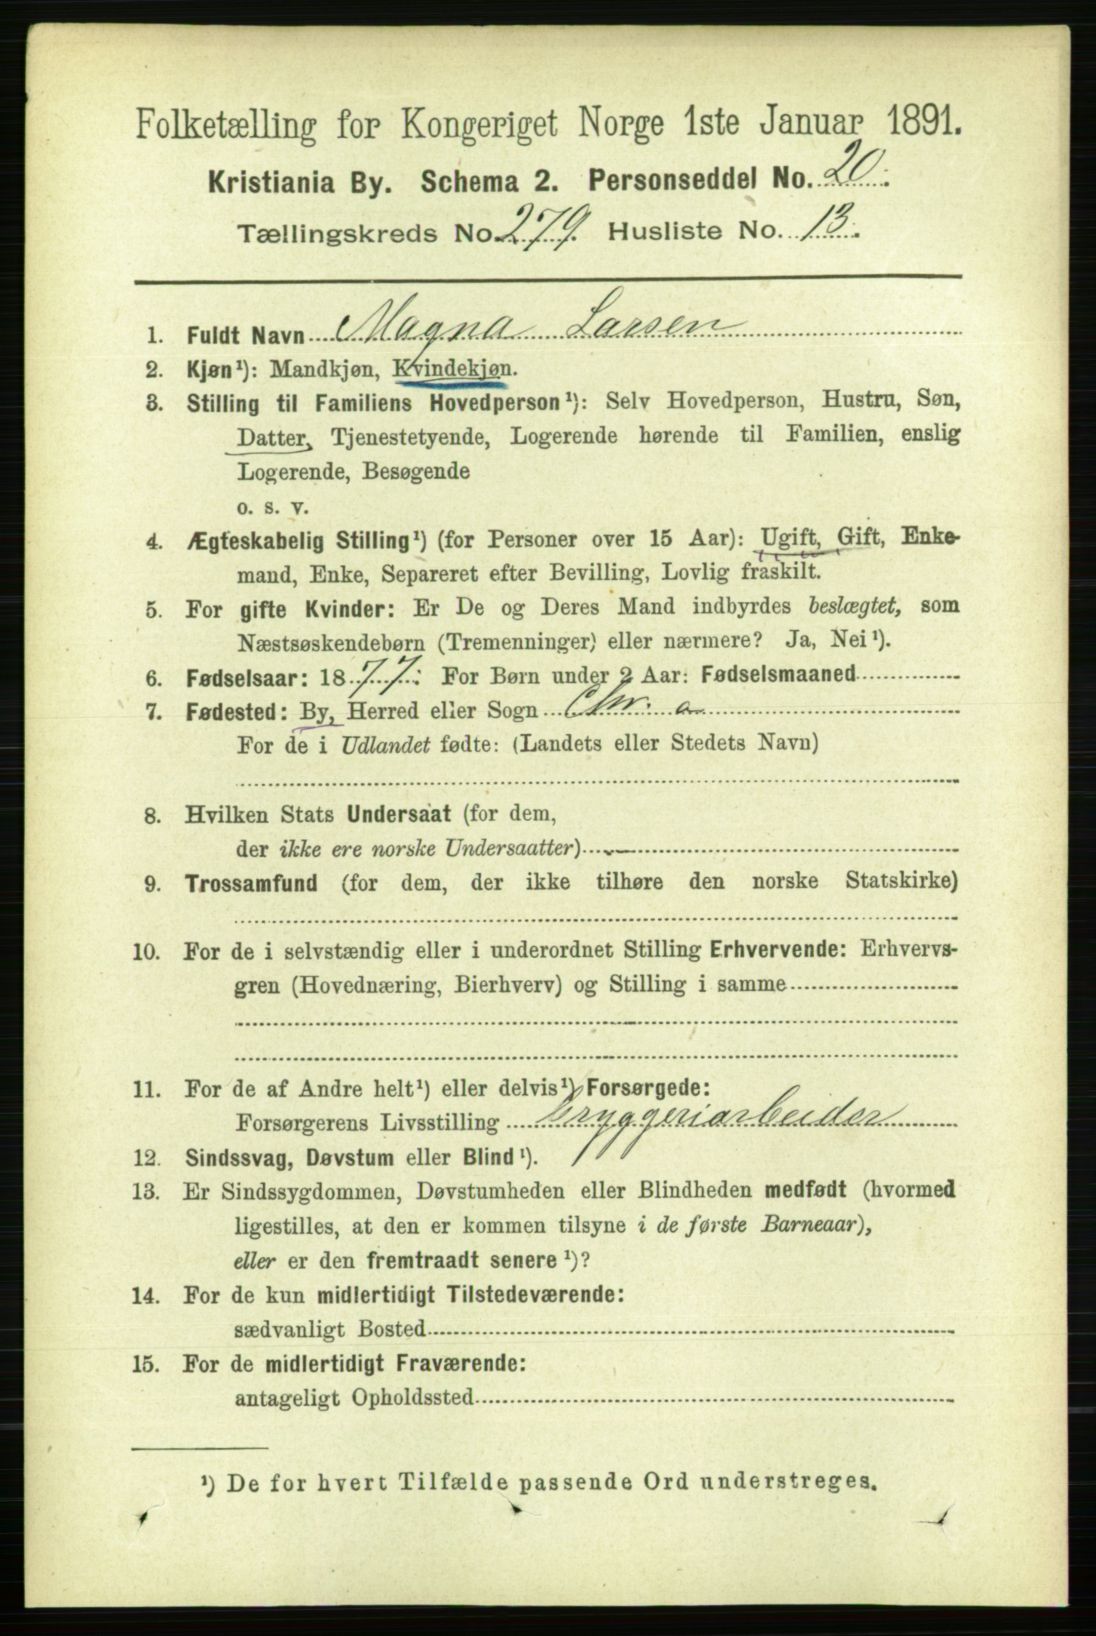 Folketælling for Kongeriget Norge 1ste Januar 1891.
Kristiania By. Schema 2. Personseddel No. 20.
Tællingskreds No. 279. Husliste No. 13.
1. Fuldt Navn Magna Larsen
2. Kjøn¹): Mandkjøn, Kvindekjøn.
3. Stilling til Familiens Hovedperson¹): Selv Hovedperson, Hustru, Søn,
Datter, Tjenestetyende, Logerende hørende til Familien, enslig
Logerende, Besøgende
o. s. v.
4. Ægteskabelig Stilling¹) (for Personer over 15 Aar): Ugift, Gift, Enke-
mand, Enke, Separeret efter Bevilling, Lovlig fraskilt.
5. For gifte Kvinder: Er De og Deres Mand indbyrdes beslægtet, som
Næstsøskendebørn (Tremenninger) eller nærmere? Ja, Nei¹).
6. Fødselsaar: 1877. For Børn under 2 Aar: Fødselsmaaned
7. Fødested: By, Herred eller Sogn Chr. a
For de i Udlandet fødte: (Landets eller Stedets Navn)
8. Hvilken Stats Undersaat (for dem,
der ikke ere norske Undersaatter)
9. Trossamfund (for dem, der ikke tilhøre den norske Statskirke)
10. For de i selvstændig eller i underordnet Stilling Erhvervende: Erhvervs-
gren (Hovednæring, Bierhverv) og Stilling i samme
11. For de af Andre helt¹) eller delvis¹) Forsørgede:
Forsørgerens Livsstilling Bryggeriarbeider
12. Sindssvag, Døvstum eller Blind¹).
13. Er Sindssygdommen, Døvstumheden eller Blindheden medfødt (hvormed
ligestilles, at den er kommen tilsyne i de første Barneaar),
eller er den fremtraadt senere¹)?
14. For de kun midlertidigt Tilstedeværende:
sædvanligt Bosted
15. For de midlertidigt Fraværende:
antageligt Opholdssted
¹) De for hvert Tilfælde passende Ord understreges.